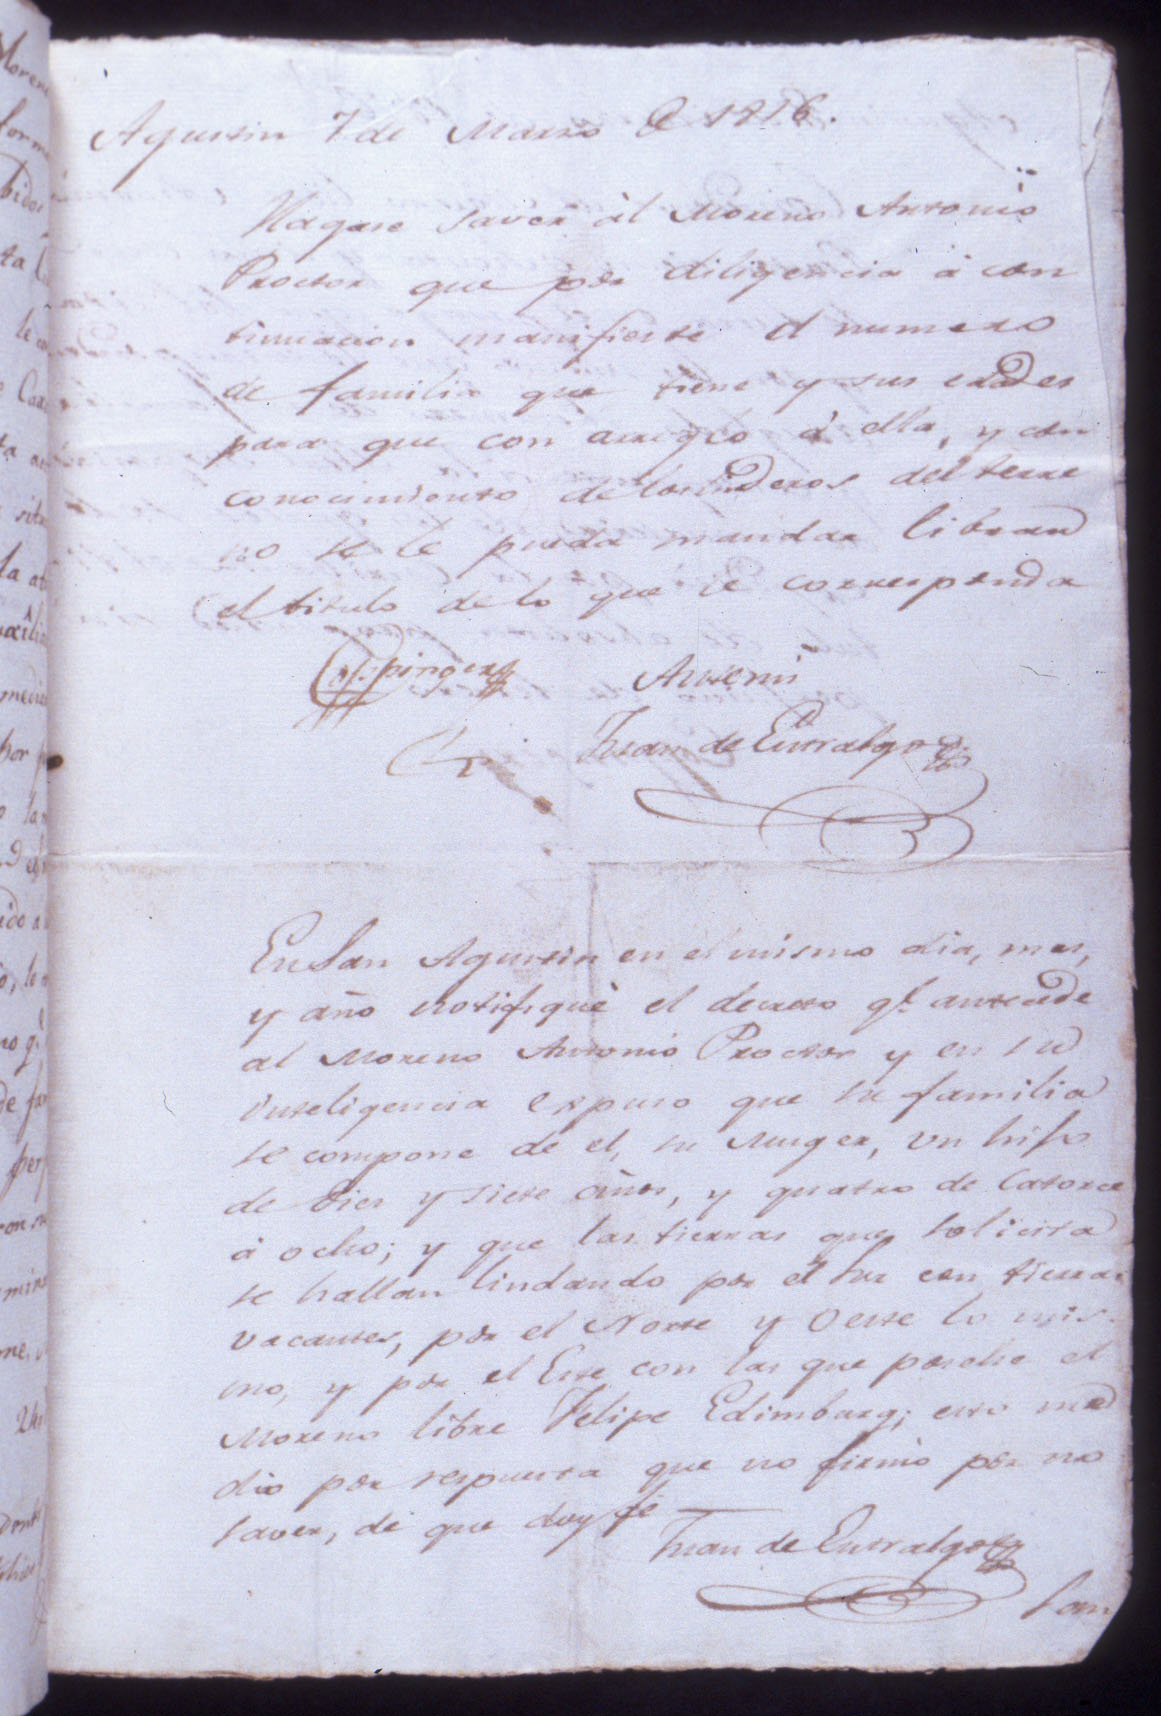 Agustin 7 de Marzo de 1816.
Hagase saver àl Moreno Antonio
Proctor que por diligencia à con
tinuacion manifieste el numero
de familia que tiene y sus edades
para que con arreglo à ella, y con
conocimiento de los linderos del terre
no se le pueda mandar librar
el titulo de lo que le corresponda
Coppinger
Antemi
Juan de Entralgo
En San Agustin en el mismo dia, mes,
y año notifiquè el decreto qe. antecede
al Moreno Antonio Proctor y en su
inteligencia expuso que su familia
se compone de el, su Muger, un hijo
de Dies y siete años, y quatro de Catorce
à ocho; y que las tierras que solicita
se hallan lindando por el Sur con tierras
vacantes, por el Norte y Oeste lo mis-
mo, y por el Este con las que posehe el
Moreno libre Felipe Edimburg; esto
dio por respuesta que no firmò por no
saver, de que doy fé
Juan de Entralgo